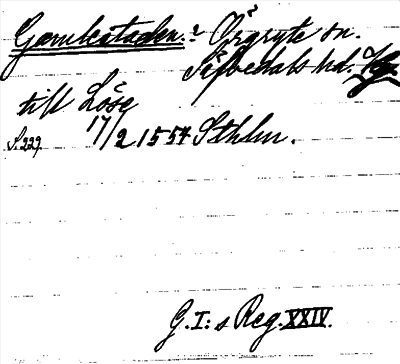 Gamlestaden.? Örgryte sn.
Säfvedals hd.
till Löse
17/2 1557 Sthlm.
S. 229.
G. I:s Reg. XXIV.